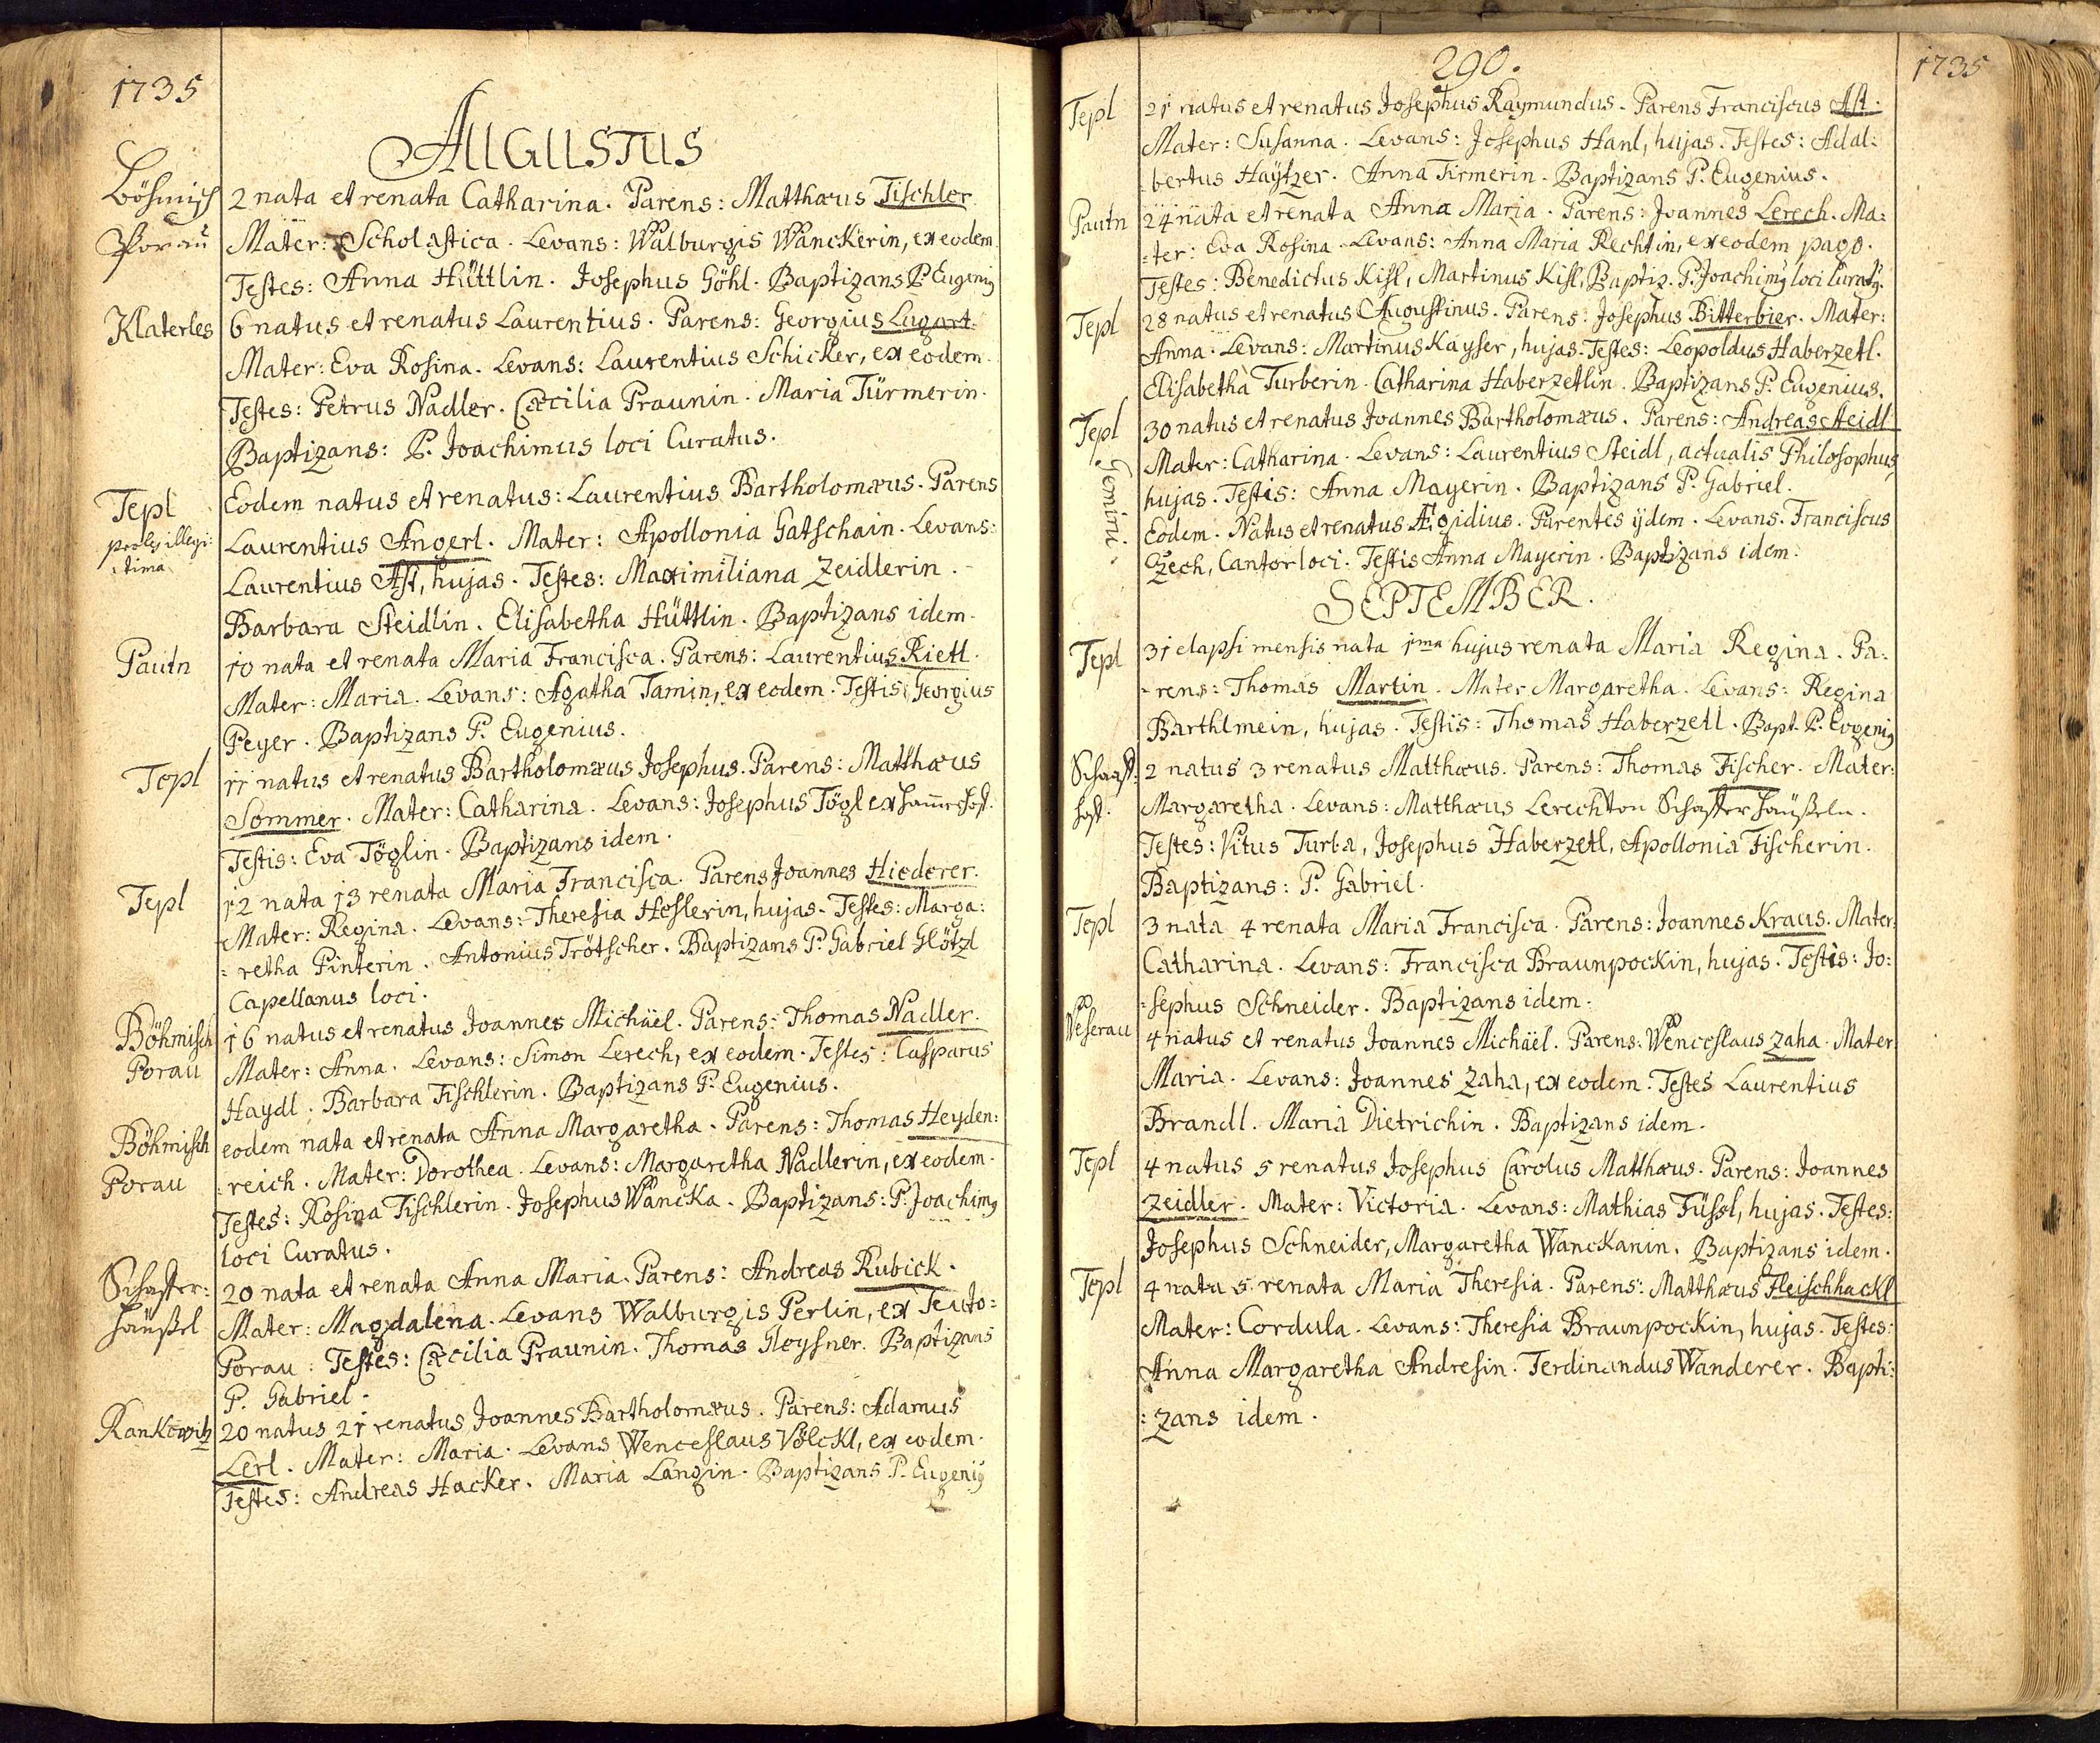 1735
AUGUSTUS
Böhmisch
Porau
2 nata et renata Catharina. Parens: Matthæus Tischler
Mater: Scholastica. Levans: Walburgis Wanckerin, ex eodem.
Testes: Anna Hüttlin. Josephus Göhl. Baptizans P. Eugenig
Klaterles
6 natus et renatus Laurentius. Parens: Georgius Lugart.
Mater: Eva Rosina. Levans: Laurentius Schicker, ex eodem.
Testes: Petrus Nadler. Cæcilia Praunin. Maria Türmerin.
Baptizans: P. Joachimus loci Curatus.
Tepl
proles illegi:
:tima
Eodem natus et renatus: Laurentius Bartholomæus. Parens
Laurentius Angerl. Mater: Apollonia Gatschain. Levans:
Laurentius Ast, hujas. Testes: Maximiliana Zeidlerin.
Barbara Steidlin. Elisabetha Hüttlin. Baptizans idem.
Pautn
10 nata et renata Maria Francisca. Parens: Laurentius Rietl.
Mater: Maria. Levans: Agatha Tamin, ex eodem. Testis: Georgius
Peyer. Baptizans P. Eugenius.
Tepl
11 natus et renatus Bartholomæus Josephus. Parens: Matthæus
Sommer. Mater: Catharina. Levans: Josephus Tögl ex Ham̄erhof.
Testis: Eva Töglin. Baptizans idem.
Tepl
12 nata 13 renata Maria Francisca. Parens Joannes Hiederer.
Mater: Regina. Levans: Theresia Hoslerin, hujas. Testes: Marga:
:retha Pinterin. Antonius Trötscher. Baptizans P. Gabriel Glötzl
Capellanus loci.
Böhmisch
Porau
16 natus et renatus Joannes Michäel. Parens: Thomas Nadler.
Mater: Anna. Levans: Simon Lerech, ex eodem. Testes: Casparus
Haydl. Barbara Tischlerin. Baptizans P. Eugenius.
Böhmisch
Porau
eodem nata et renata Anna Margaretha. Parens: Thomas Heyden:
:reich. Mater: Dorothea. Levans: Margaretha Nadlerin, ex eodem.
Testes: Rosina Tischlerin. Josephus Wancka. Baptizans: P. Joachimg
loci Curatus.
Schaffer:
häußel
20 nata et renata Anna Maria. Parens: Andreas Rubick.
Mater: Magdalena. Levans Walburgis Perlin, ex Teuto:
Porau. Testes: Cæcilia Praunin. Thomas Gleysner. Baptizans
P. Gabriel.
Rankowitz
20 natus 21 renatus Joannes Bartholomæus. Parens: Adamus
Lerl. Mater: Maria. Levans Wenceslaus Völckl, ex eodem.
Testes: Andreas Hacker. Maria Langin. Baptizans P. Eugenig
290.
1735
Tepl
21 natus et renatus Josephus Raymundus. Parens Franciscus Ast.
Mater: Susanna. Levans: Josephus Hanl, hujas. Testes: Adal:
:bertus Haytzer. Anna Tirmerin. Baptizans P. Eugenius.
Pautn
24 nata et renata Anna Maria. Parens: Joannes Lerech. Ma:
:ter: Eva Rosina. Levans: Anna Maria Rechtin, ex eodem pago.
Testes: Benedictus Kisl, Martinus Kisl, Baptiz. P. Joachimg loci Curatg.
Tepl
28 natus et renatus Augustinus. Parens: Josephus Bitterbier. Mater:
Anna. Levans: Martinus Kayser, hujas. Testes: Leopoldus Haberzetl.
Elisabetha Turberin. Catharina Haberzetlin. Baptizans P. Eugenius.
Tepl
Gemini.
30 natus et renatus Joannes Bartholomæus. Parens: Andreas Steidl
Mater: Catharina. Levans: Laurentius Steidl, actualis Philosophus
hujas. Testis: Anna Mayerin. Baptizans P. Gabriel.
Eodem. Natus et renatus Ægidius. Parentes ijdem. Levans. Franciscus
Czech, Cantor loci. Testis Anna Mayerin. Baptizans idem.
SEPTEMBER.
Tepl
31 elapsi mensis nata 1ma hujus renata Maria Regina. Pa:
:rens: Thomas Martin. Mater Margaretha. Levans: Regina
Barthlmein, hujas. Testis: Thomas Haberzetl. Bapt. P. Evgenig
Schaaf:
hof.
2 natus 3 renatus Matthæus. Parens: Thomas Fischer. Mater:
Margaretha. Levans: Matthæus Lerech von Schafferhäußeln.
Testes: Vitus Turba, Josephus Haberzetl, Apollonia Fischerin.
Baptizans: P. Gabriel.
Tepl
3 nata 4 renata Maria Francisca. Parens: Joannes Kraus. Mater:
Catharina. Levans: Francisca Braunpockin, hujas. Testis: Jo:
:sephus Schneider. Baptizans idem.
Weserau
4 natus et renatus Joannes Michäel. Parens: Wenceslaus Zaha. Mater
Maria. Levans: Joannes Zaha, ex eodem. Testes Laurentius
Brandl. Maria Dietrichin. Baptizans idem.
Tepl
4 natus 5 renatus Josephus Carolus Matthæus. Parens: Joannes
Zeidler. Mater: Victoria. Levans: Mathias Füssl, hujas. Testes:
Josephus Schneider, Margaretha Wanckanin. Baptizans idem.
Tepl
4 nata 5 renata Maria Theresia. Parens: Matthæus Fleischhackl
Mater: Cordula. Levans: Theresia Braunpockin, hujas. Testes:
Anna Margaretha Andresin. Ferdinandus Wanderer. Bapti:
:zans idem.